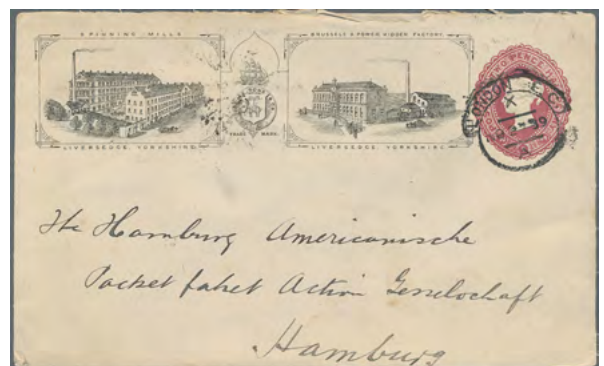 SPINNING MILLS
LIVERSEDGE, YORKSHIRE.
TRADE MARK
BRUSSELS & POWER WIDGEN FACTORY.
LIVERSEDGE, YORKSHIRE.
TWO PENCE
LONDON E.C.
X
The Hamburg Americanische
Packet fahrt Action Gesselschaft
Hamburg